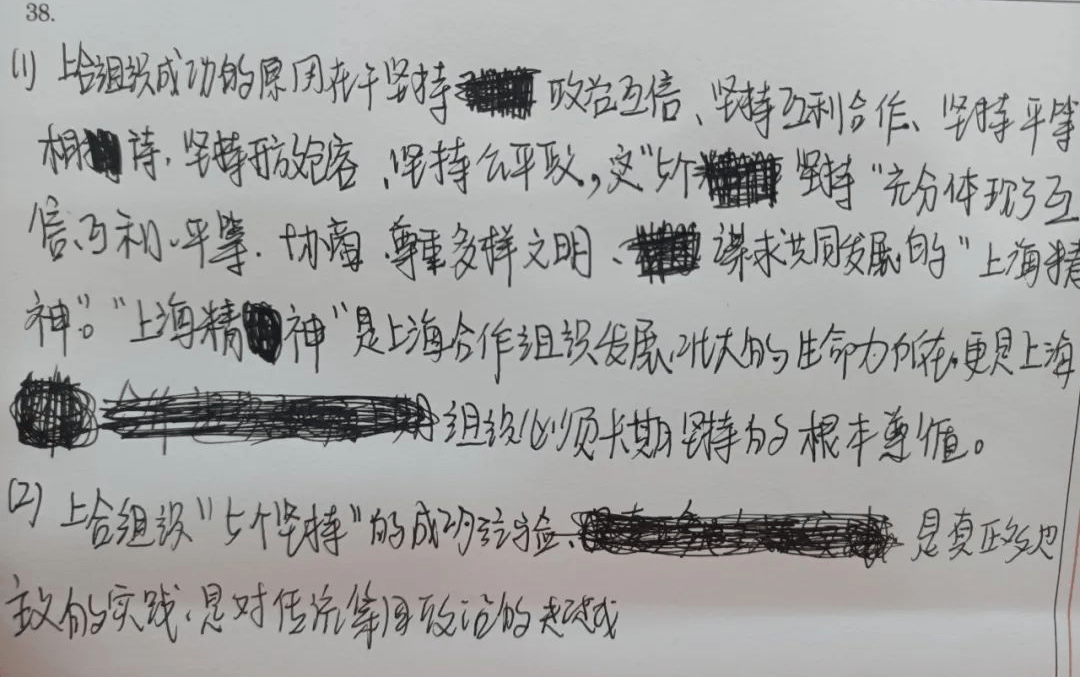 38.
(1) 上合组织成功的原因在于坚持政治互信、坚持互利合作、坚持平等
相待、坚持开放包容、坚持公平正义,这"5个坚持"充分体现了互
信、互利、平等、协商、尊重多样文明、谋求共同发展的"上海精
神"。"上海精神"是上海合作组织发展壮大的生命力所在,更是上海
组织必须长期坚持的根本遵循。
(2) 上合组织"5个坚持"的成功经验、是真正多边
主义的实践、是对传统集团政治的超越